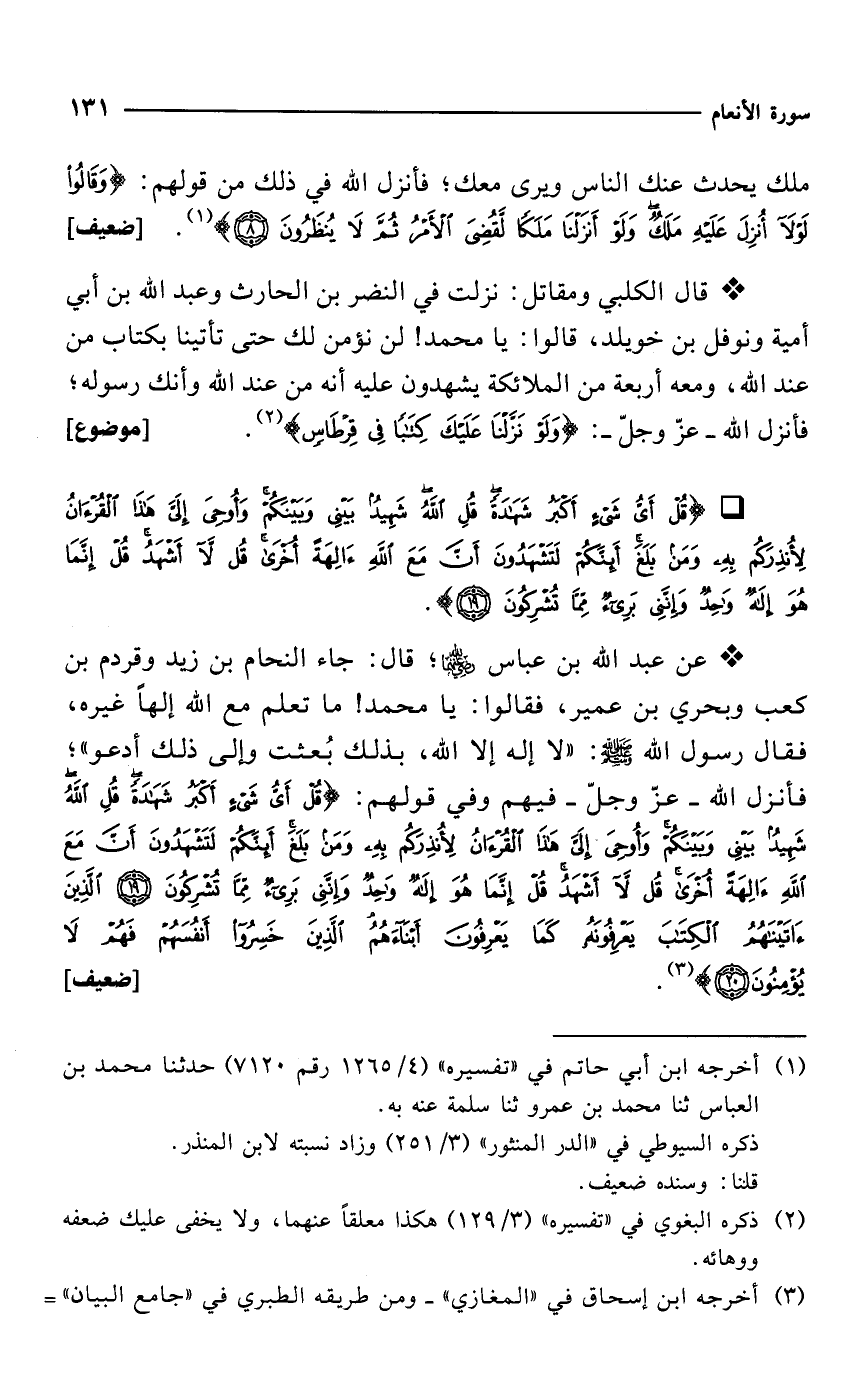 سورة الأنعام ١٣١
ملك يحدث عنك الناس ويرى معك؛ فأنزل الله في ذلك من قولهم: ﴿وَقَالُواْ
لَوۡلَآ أُنزِلَ عَلَيۡهِ مَلَكٞۖ وَلَوۡ أَنزَلۡنَا مَلَكٗا لَّقُضِيَ ٱلۡأَمۡرُ ثُمَّ لَا يُنظَرُونَ ٨﴾(١). [ضعيف]
❖ قال الكلبي ومقاتل: نزلت في النضر بن الحارث وعبد الله بن أبي
أمية ونوفل بن خويلد، قالوا: يا محمد! لن نؤمن لك حتى تأتينا بكتاب من
عند الله، ومعه أربعة من الملائكة يشهدون عليه أنه من عند الله وأنك رسوله؛
فأنزل الله ـ عزّ وجلّ ـ: ﴿وَلَوۡ نَزَّلۡنَا عَلَيۡكَ كِتَٰبٗا فِي قِرۡطَاسٖ﴾(٢). [موضوع]
❑ ﴿قُلۡ أَيُّ شَيۡءٍ أَكۡبَرُ شَهَٰدَةٗۖ قُلِ ٱللَّهُۖ شَهِيدُۢ بَيۡنِي وَبَيۡنَكُمۡۚ وَأُوحِيَ إِلَيَّ هَٰذَا ٱلۡقُرۡءَانُ
لِأُنذِرَكُم بِهِۦ وَمَنۢ بَلَغَۚ أَئِنَّكُمۡ لَتَشۡهَدُونَ أَنَّ مَعَ ٱللَّهِ ءَالِهَةً أُخۡرَىٰۚ قُل لَّآ أَشۡهَدُۚ قُلۡ إِنَّمَا
هُوَ إِلَٰهٞ وَٰحِدٞ وَإِنَّنِي بَرِيٓءٞ مِّمَّا تُشۡرِكُونَ ١٩﴾.
❖ عن عبد الله بن عباس رضي الله عنهما؛ قال: جاء النحام بن زيد وقردم بن
كعب وبحري بن عمير، فقالوا: يا محمد! ما تعلم مع الله إلهاً غيره،
فقال رسول الله ﷺ: «لا إله إلا الله، بذلك بُعثت وإلى ذلك أدعو»؛
فأنزل الله ـ عزّ وجلّ ـ فيهم وفي قولهم: ﴿قُلۡ أَيُّ شَيۡءٍ أَكۡبَرُ شَهَٰدَةٗۖ قُلِ ٱللَّهُۖ
شَهِيدُۢ بَيۡنِي وَبَيۡنَكُمۡۚ وَأُوحِيَ إِلَيَّ هَٰذَا ٱلۡقُرۡءَانُ لِأُنذِرَكُم بِهِۦ وَمَنۢ بَلَغَۚ أَئِنَّكُمۡ لَتَشۡهَدُونَ أَنَّ مَعَ
ٱللَّهِ ءَالِهَةً أُخۡرَىٰۚ قُل لَّآ أَشۡهَدُۚ قُلۡ إِنَّمَا هُوَ إِلَٰهٞ وَٰحِدٞ وَإِنَّنِي بَرِيٓءٞ مِّمَّا تُشۡرِكُونَ ١٩ ٱلَّذِينَ
ءَاتَيۡنَٰهُمُ ٱلۡكِتَٰبَ يَعۡرِفُونَهُۥ كَمَا يَعۡرِفُونَ أَبۡنَآءَهُمُۘ ٱلَّذِينَ خَسِرُوٓاْ أَنفُسَهُمۡ فَهُمۡ لَا
يُؤۡمِنُونَ ٢٠﴾(٣). [ضعيف]
(١) أخرجه ابن أبي حاتم في «تفسيره» (٤/ ١٢٦٥ رقم ٧١٢٠) حدثنا محمد بن
العباس ثنا محمد بن عمرو ثنا سلمة عنه به.
ذكره السيوطي في «الدر المنثور» (٣/ ٢٥١) وزاد نسبته لابن المنذر.
قلنا: وسنده ضعيف.
(٢) ذكره البغوي في «تفسيره» (٣/ ١٢٩) هكذا معلقاً عنهما، ولا يخفى عليك ضعفه
ووهائه.
(٣) أخرجه ابن إسحاق في «المغازي» ـ ومن طريقه الطبري في «جامع البيان» =